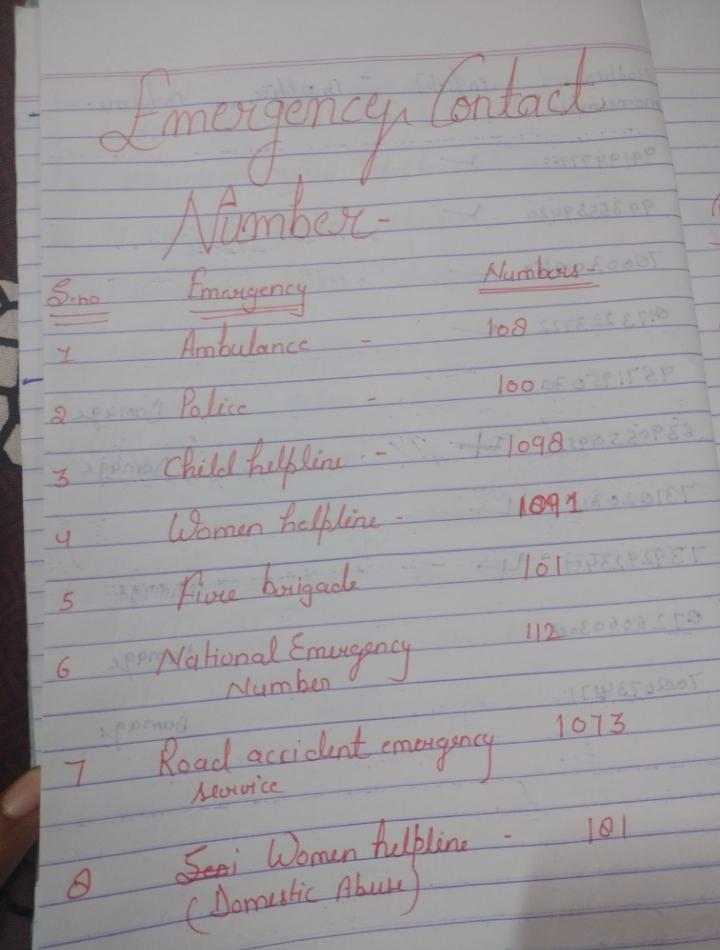 Emergency Contact
Number-
S.no Emargency Numbers-
1 Ambulance - 108
2 Police - 100
3 Child helpline - 1098
4 Women helpline - 1091
5 Fire brigade - 101
6 National Emergency 112
Number
7 Road accident emergency 1073
service
8 Women helpline - 181
(Domestic Abuse)